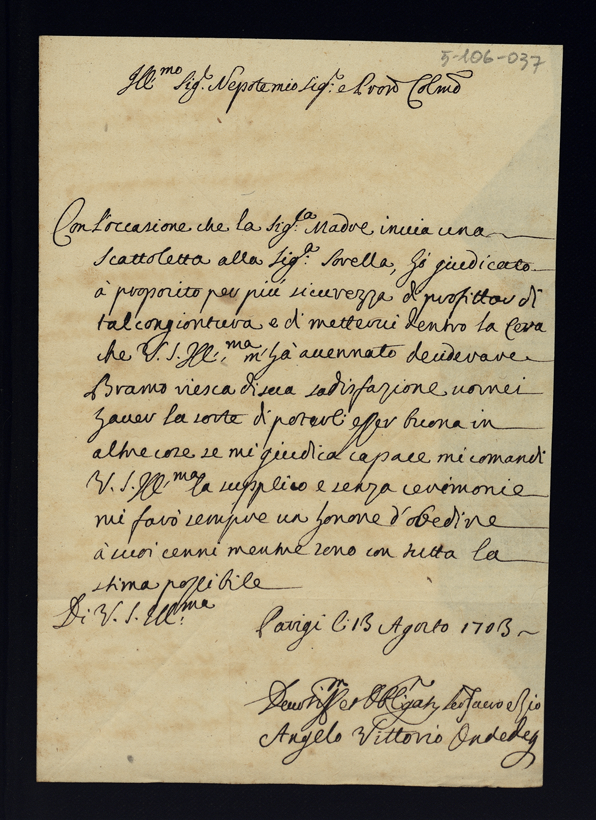 5-106-037
Ill.mo Sig.r Nepote mio Sig.r e Pron Colmo
Con l'occasione che la Sig.ra Madre inuia una
scattoletta alla Sig.a Sorella, hò giudicato
à proposito per più sicurezza di profittar di
tal congiontura e di metterui dentro la Cera
che V. S. Ill.ma m'hà auennato deuderare
Bramo riesca di sua sodisfazione uorrei
hauer la sorte di poterli esser buona in
altre cose se mi giudica capace mi comandi
V. S. Ill.ma la supplico e senza cerimonie
mi farò sempre un honore d'obedire
à suoi cenni mentre sono con tutta la
stima possibile
Di V. S. Ill.ma
Parigi li 13 Agosto 1703
Deuotiss.r et Obblig.a Seruo e Zio
Angelo Vittorio Ondedei